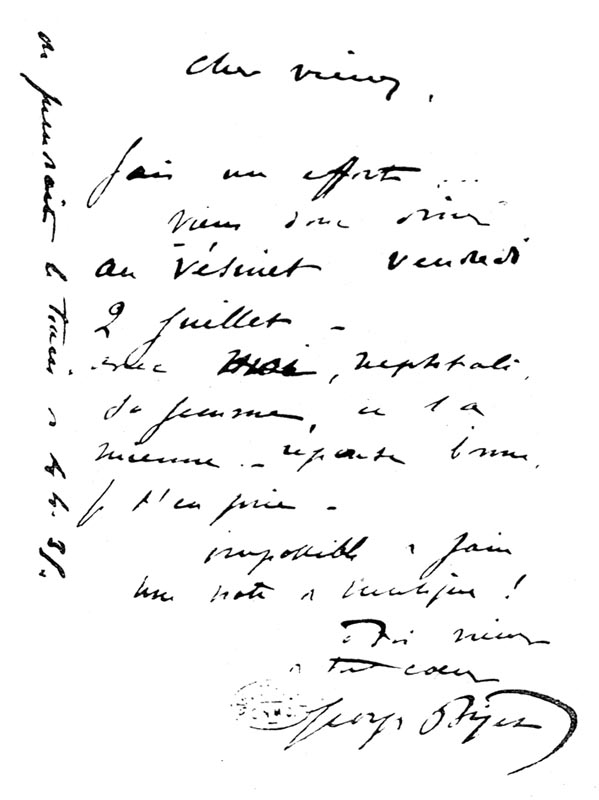 Cher vieux,
Fais un effort ...
viens donc diner
au Vésinet vendredi
2 juillet -
avec moi, nephtali,
sa femme, et la
mienne - réponse bonne,
je t'en prie -
impossible de faire
une note de musique !
à Toi vieux
de tout coeur
Georges Bizet
on prendrait le train de 4 h. 35.